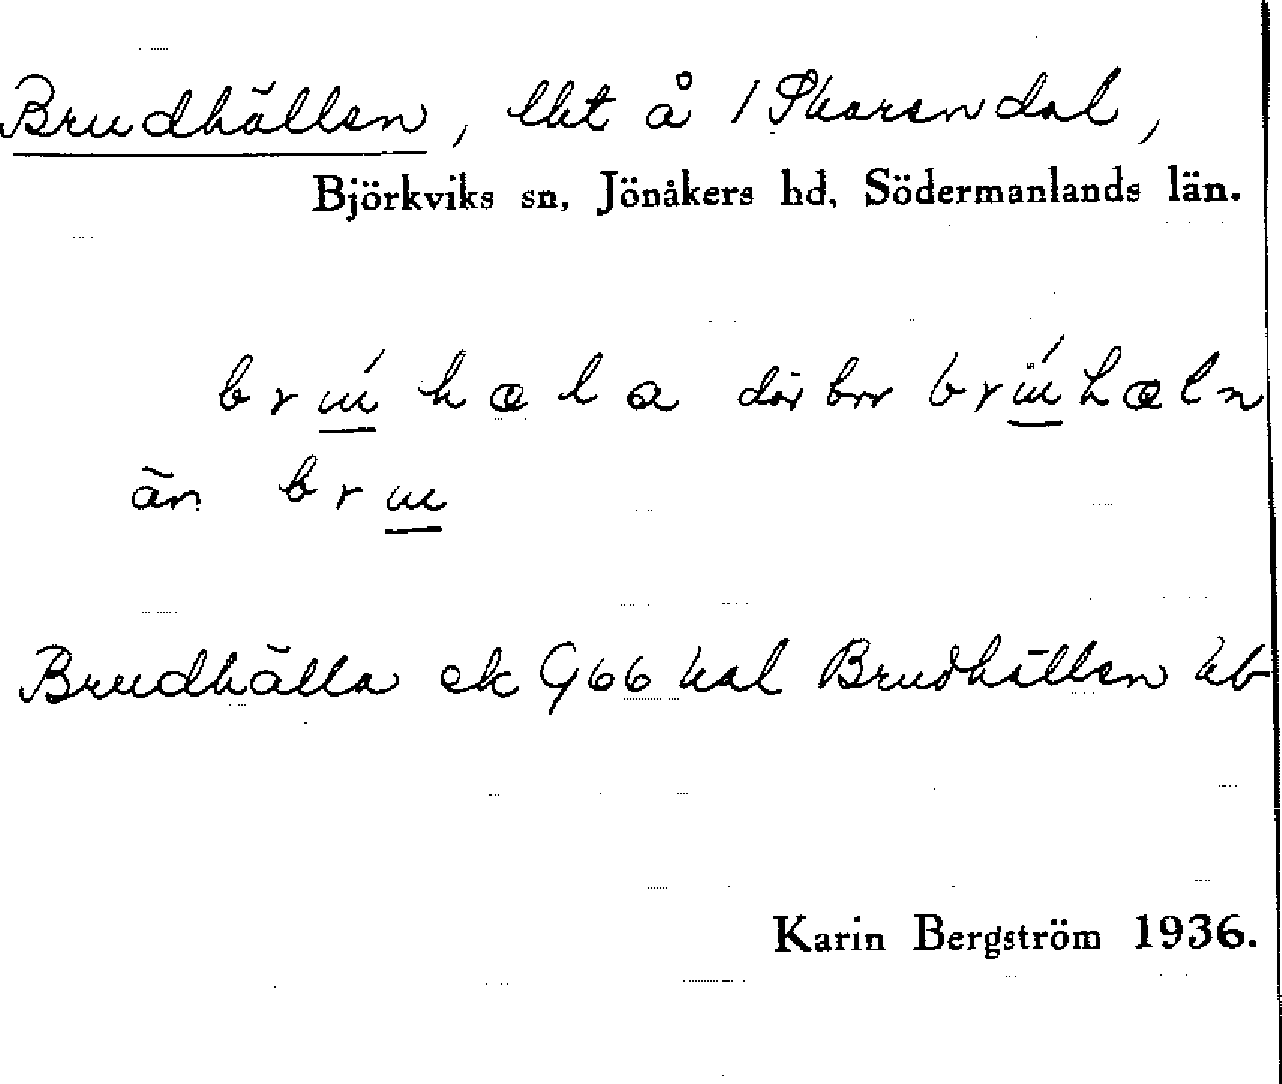 Brudhällen, lht å 1 Skarendal,
Björkviks sn, Jönåkers hd, Södermanlands län.
brɯ́ hæla där brɯ́hæln
än brɯ
Brudhälla ek G66 kal Brudhällen kb
Karin Bergström 1936.